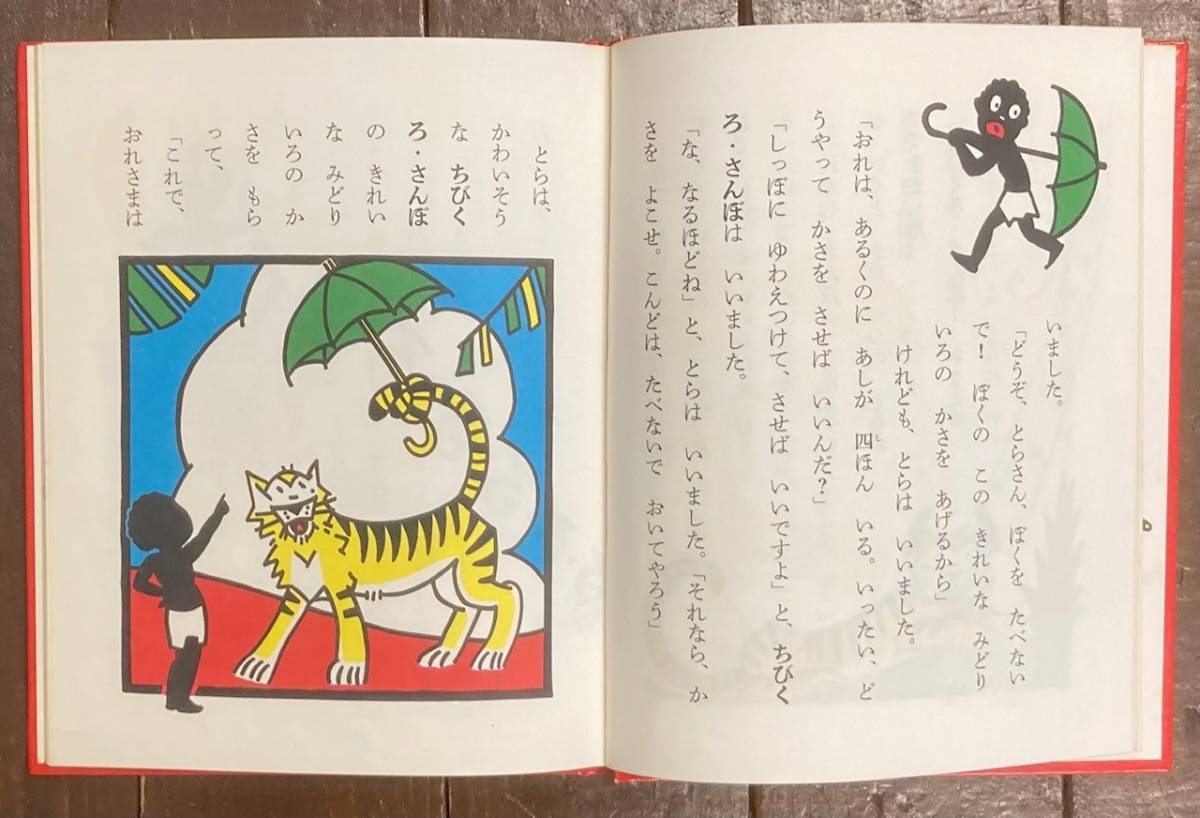 いました。
「どうぞ、とらさん、ぼくを たべない
で! ぼくの この きれいな みどり
いろの かさを あげるから」
けれども、とらは いいました。
「おれは、あるくのに あしが 四ほん いる。いったい、ど
うやって かさを させば いいんだ?」
「しっぽに ゆわえつけて、させば いいですよ」と、ちびく
ろ・さんぼは いいました。
「な、なるほどね」と、とらは いいました。「それなら、か
さを よこせ。こんどは、たべないで おいてやろう」
とらは、
かわいそう
な ちびく
ろ・さんぼ
の きれい
な みどり
いろの か
さを もら
って、
「これで、
おれさまは